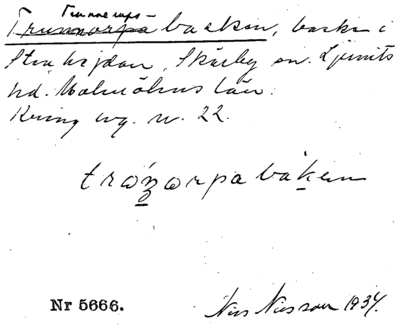 Trunnerups-
Trunnorpa backen, backe i
Stra Herjdan, Skårby sn. Ljunits
hd. Malmöhus län.
Kring vg. n. 22.
trånorpabaken
Nr 5666.
Nils Nilsson 1934.